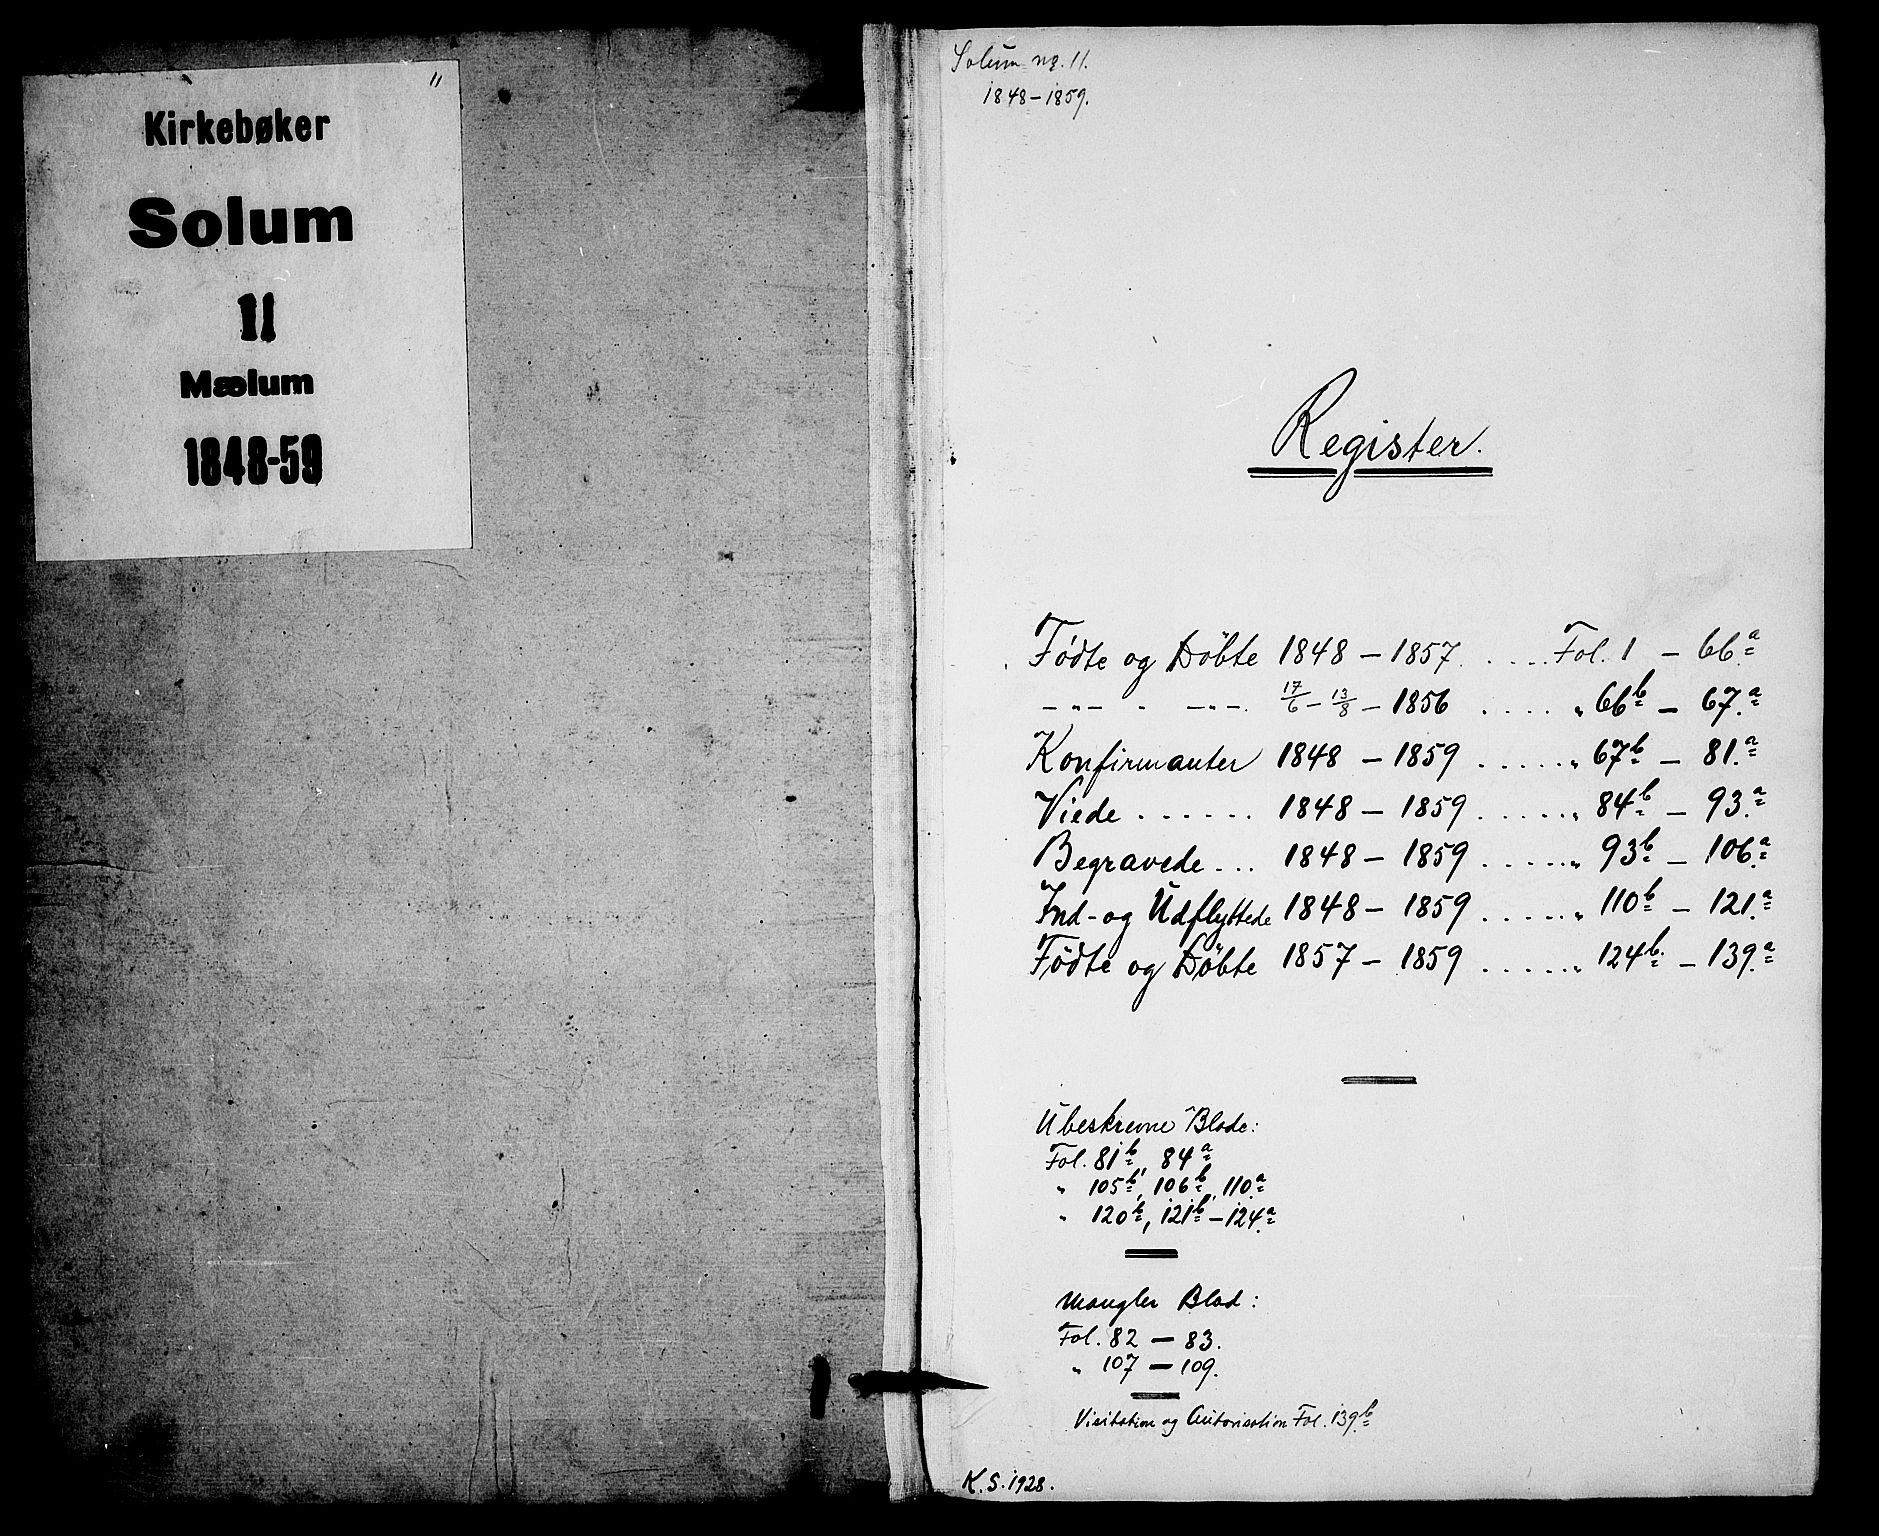 11
Kirkebøker
Solum
11
Mælum
1848-59
Solum nr. 11.
1848-1859.
Register.
Fødte og Döbte 1848 - 1857. ..... Fol. 1 - 66.a
- " - " - " - 17/6 - 13/8 - 1856 .... " 66b - 67.a
Konfirmanter 1848 - 1859 ..... " 67b - 81.a
Viede ...... 1848 - 1859 ..... " 84b - 93.a
Begravede... 1848 - 1859 ..... " 93b - 106.a
Ind- og Udflyttede 1848 - 1859 ..... " 110b - 121.a
Födte og Döbte 1857 - 1859 ..... " 124b - 139.a
Ubeskrevne Blade:
Fol. 81b, 84a
" 105b, 106b, 110.a
" 120b, 121b - 124.a
Mangler Blad:
Fol. 82 - 83.
" 107 - 109.
Visitation og Autorisation Fol. 139b
K. S. 1928.